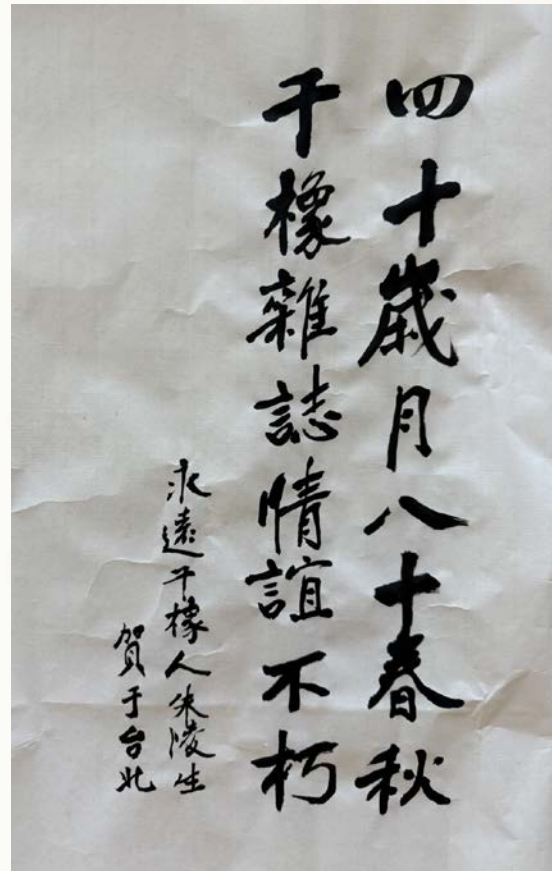 四十歲月八十春秋
千橡雜誌情誼不朽
永遠千橡人朱浚生
賀于台北